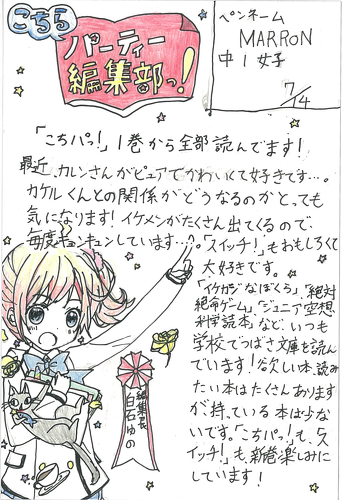 こちら
パーティー
編集部っ!
ペンネーム
MARRON
中1女子
7/14
「こちパっ!」1巻から全部読んでます!
最近、カレンさんがピュアでかわいくて好きです…。
カケルくんとの関係がどうなるのかとっても
気になります!イケメンがたくさん出てくるので、
毎度キュンキュンしています…♡。「スイッチ!」もおもしろくて
大好きです。
「イケカジなぼくら」「絶対
絶命ゲーム」「ジュニア空想
科学読本」など、いつも
学校でつばさ文庫を読ん
でいます!欲しい本、読み
たい本はたくさんあります
が、持っている本は少な
いです。「こちパっ!」も、「ス
イッチ!」も新巻楽しみに
しています!
編集長
白石ゆの